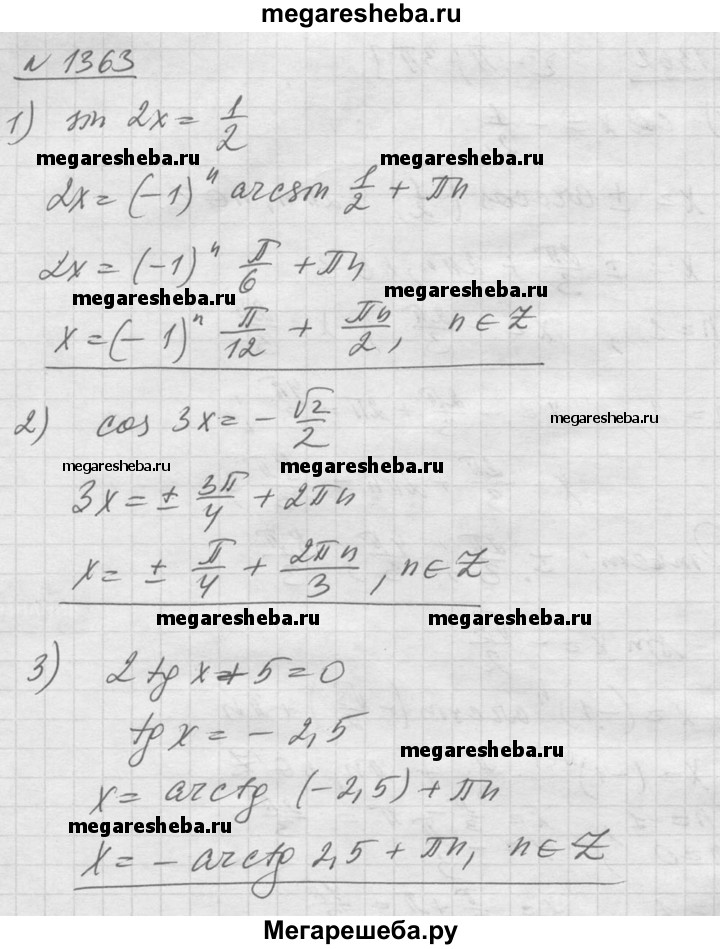 megaresheba.ru
№ 1363
1) sin 2x = 1/2
megaresheba.ru megaresheba.ru
2x = (-1)^n arcsin 1/2 + πn
2x = (-1)^n π/6 + πn
megaresheba.ru megaresheba.ru
x = (-1)^n π/12 + πn/2, n ∈ Z
2) cos 3x = - √2/2
megaresheba.ru
megaresheba.ru megaresheba.ru
3x = ± 3π/4 + 2πn
x = ± π/4 + 2πn/3, n ∈ Z
megaresheba.ru megaresheba.ru
3) 2 tg x + 5 = 0
tg x = - 2,5
megaresheba.ru
x = arctg (-2,5) + πn
megaresheba.ru
x = - arctg 2,5 + πn, n ∈ Z
Мегарешеба.ру